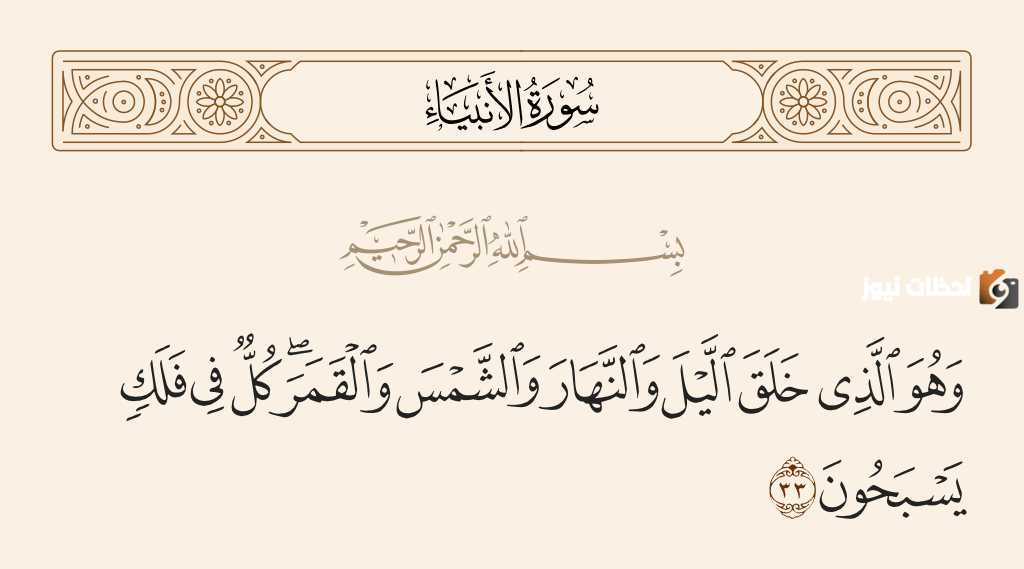 سُورَةُ الأَنبِيَاءِ
بِسْمِ ٱللَّهِ ٱلرَّحْمَٰنِ ٱلرَّحِيمِ
لحظات نيوز
وَهُوَ ٱلَّذِى خَلَقَ ٱلَّيْلَ وَٱلنَّهَارَ وَٱلشَّمْسَ وَٱلْقَمَرَ ۖ كُلٌّ فِى فَلَكٍ
يَسْبَحُونَ ٣٣